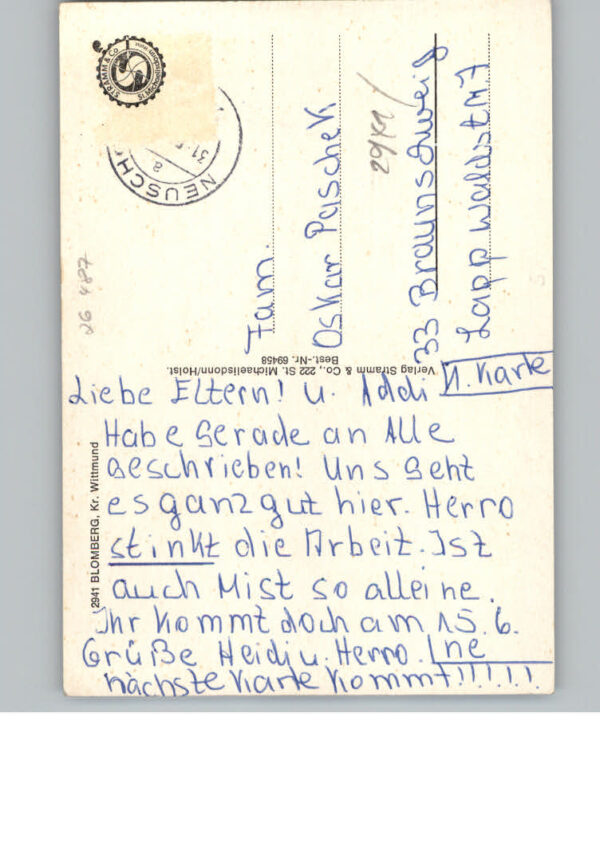 STRAMM & Co
NEUSCH
31.
8
Fam.
Oskar Paschek
29K1/
33 Braunschweig
Lappwaldstr 17
26 487
Best.-Nr. 69458
Verlag Stramm & Co., 222 St. Michaelisdonn/Holst.
2941 BLOMBERG, Kr. Wittmund
1. Karte
Liebe Eltern! u. Addi
Habe Gerade an Alle
Geschrieben! Uns Geht
es ganz gut hier. Herro
stinkt die Arbeit. Ist
auch Mist so alleine.
Ihr Kommt doch am 15.6.
Grüße Heidi u. Herro. Ine
nächste Karte Kommt!!!!!!